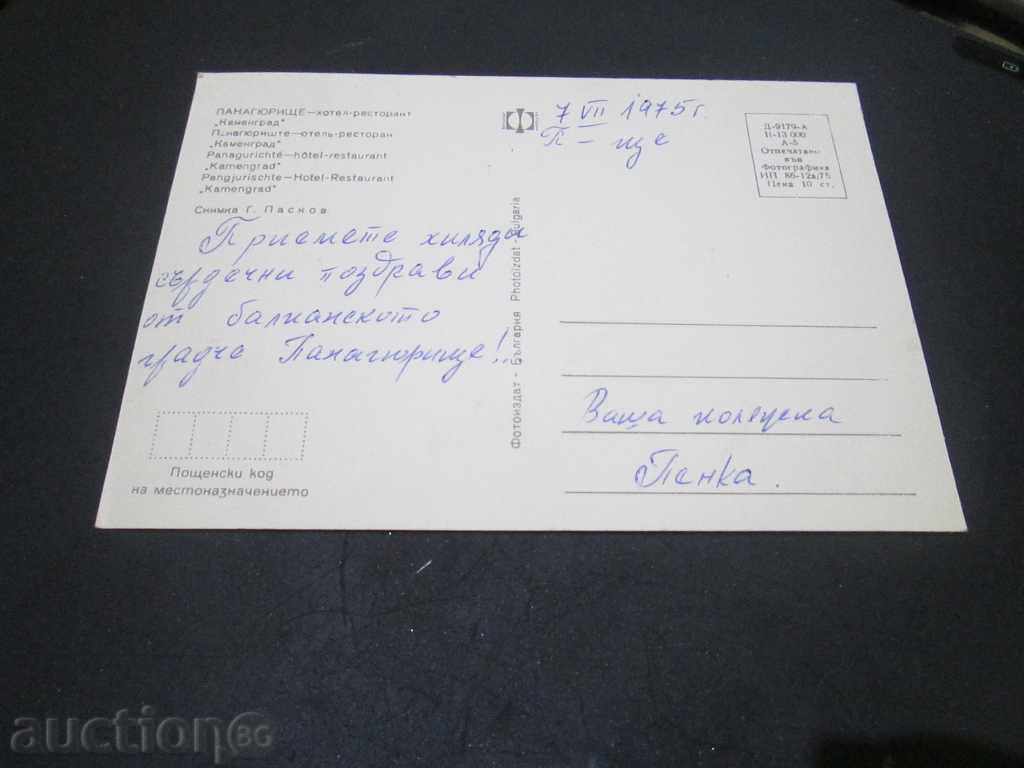 ПАНАГЮРИЩЕ—хотел-ресторант
„Каменград"
Панагюриште—отель-ресторан
„Каменград"
Panagurichté—hôtel-restaurant
„Kamengrad"
Pangjurischte—Hotel-Restaurant
„Kamengrad"
Снимка Г. Пасков
Приемете хиляди
сърдечни поздрави
от балканското
градче Панагюрище!..
Пощенски код
на местоназначението
Фотоиздат - България Photoizdat - Bulgaria
7 VII 1975 г.
П - ще
Д-9179-А
II-13 000
А-5
Отпечатано
във
Фотографика
ИП 86-12а/75
Цена 10 ст.
Ваша колежка
Пенка.
auction BG